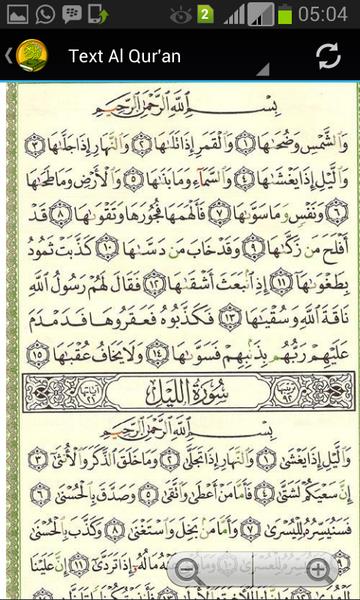 2 05:04
Text Al Qur'an
بِسْمِ اللَّهِ الرَّحْمَٰنِ الرَّحِيمِ
وَالشَّمْسِ وَضُحَىٰهَا ١ وَالْقَمَرِ إِذَا تَلَىٰهَا ٢ وَالنَّهَارِ إِذَا جَلَّىٰهَا ٣
وَاللَّيْلِ إِذَا يَغْشَىٰهَا ٤ وَالسَّمَاءِ وَمَا بَنَىٰهَا ٥ وَالْأَرْضِ وَمَا طَحَىٰهَا
٦ وَنَفْسٍ وَمَا سَوَّىٰهَا ٧ فَأَلْهَمَهَا فُجُورَهَا وَتَقْوَىٰهَا ٨ قَدْ
أَفْلَحَ مَن زَكَّىٰهَا ٩ وَقَدْ خَابَ مَن دَسَّىٰهَا ١٠ كَذَّبَتْ ثَمُودُ
بِطَغْوَىٰهَا ١١ إِذِ انبَعَثَ أَشْقَىٰهَا ١٢ فَقَالَ لَهُمْ رَسُولُ اللَّهِ
نَاقَةَ اللَّهِ وَسُقْيَىٰهَا ١٣ فَكَذَّبُوهُ فَعَقَرُوهَا فَدَمْدَمَ
عَلَيْهِمْ رَبُّهُم بِذَنبِهِمْ فَسَوَّىٰهَا ١٤ وَلَا يَخَافُ عُقْبَىٰهَا ١٥
٩٢ سُورَةُ اللَّيْلِ ٢١
بِسْمِ اللَّهِ الرَّحْمَٰنِ الرَّحِيمِ
وَاللَّيْلِ إِذَا يَغْشَىٰ ١ وَالنَّهَارِ إِذَا تَجَلَّىٰ ٢ وَمَا خَلَقَ الذَّكَرَ وَالْأُنثَىٰ ٣
إِنَّ سَعْيَكُمْ لَشَتَّىٰ ٤ فَأَمَّا مَنْ أَعْطَىٰ وَاتَّقَىٰ ٥ وَصَدَّقَ بِالْحُسْنَىٰ ٦
فَسَنُيَسِّرُهُ لِلْيُسْرَىٰ ٧ وَأَمَّا مَن بَخِلَ وَاسْتَغْنَىٰ ٨ وَكَذَّبَ بِالْحُسْنَىٰ
٩ فَسَنُيَسِّرُهُ لِلْعُسْرَىٰ ١٠ وَمَا يُغْنِي عَنْهُ مَالُهُ إِذَا تَرَدَّىٰ ١١ إِنَّ عَلَيْنَا